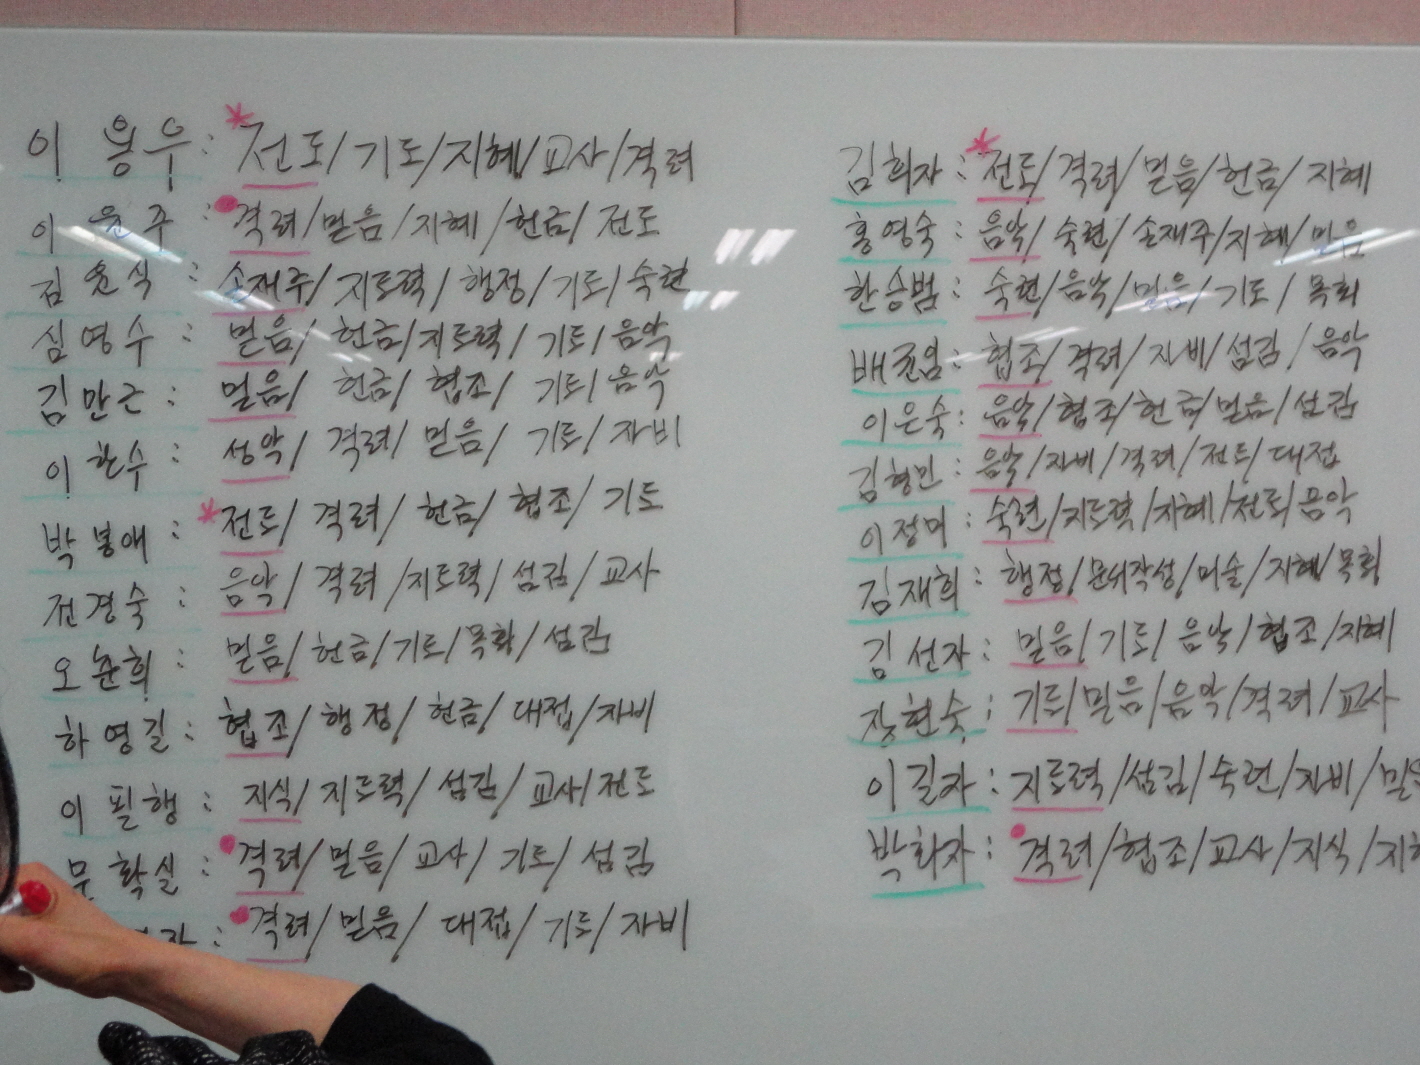 이 용우 : *전도/기도/지혜/교사/격려
이 윤주 : 격려/믿음/지혜/헌금/전도
김 윤식 : 손재주/지도력/행정/기도/숙련
심영수 : 믿음/헌금/지도력/기도/음악
김만근 : 믿음/헌금/협조/기도/음악
이 한수 : 성악/격려/믿음/기도/자비
박봉애 : *전도/격려/헌금/협조/기도
전경숙 : 음악/격려/지도력/섬김/교사
오춘희 : 믿음/헌금/기도/목회/섬김
하영길 : 협조/행정/헌금/대접/자비
이 필행 : 지식/지도력/섬김/교사/전도
문확실 : 격려/믿음/교사/기도/섬김
자 : 격려/믿음/대접/기도/자비
김희자 : *전도/격려/믿음/헌금/지혜
홍영숙 : 음악/숙련/손재주/지혜/믿음
한승범 : 숙련/음악/믿음/기도/목회
배균임 : 협조/격려/자비/섬김/음악
이은숙 : 음악/협조/헌금/믿음/섬김
김형민 : 음악/자비/격려/전도/대접
이정미 : 숙련/지도력/지혜/전도/음악
김재희 : 행정/문서작성/미술/지혜/목회
김선자 : 믿음/기도/음악/협조/지혜
장현숙 : 기도/믿음/음악/격려/교사
이길자 : 지도력/섬김/숙련/자비/믿음
박화자 : 격려/협조/교사/지식/지혜